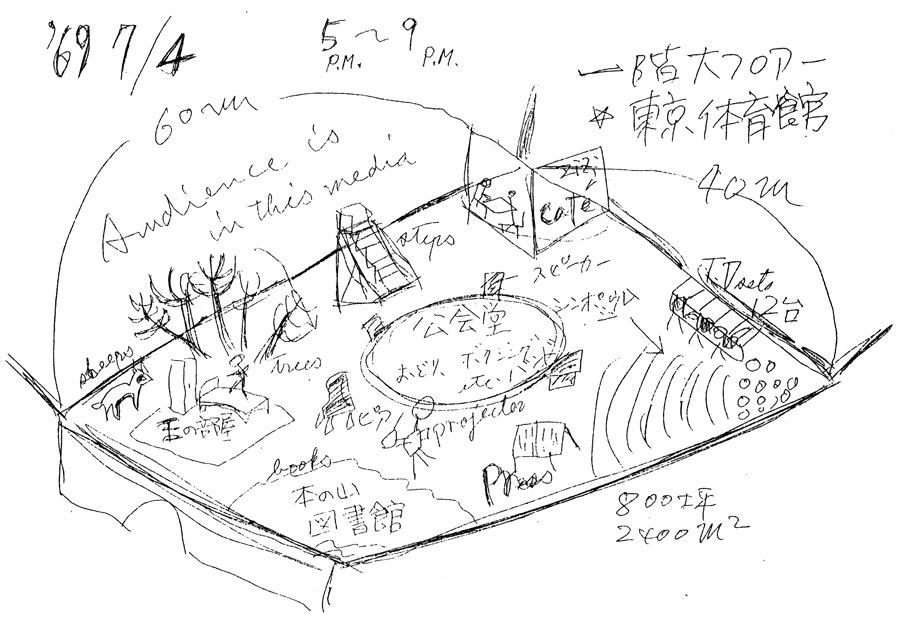 '69 7/4
5 P.M. ~ 9 P.M.
一階大フロアー
☆ 東京体育館
60m
40m
Audience is
in this media
ZiZi
Café
steps
スピーカー
シンポジウム
T.V sets
12台
公会堂
おどり、ボクシング、バンド
etc.
sheeps
trees
王の部屋
ピアノ
projector
books
本の山
図書館
Press
800坪
2400m²